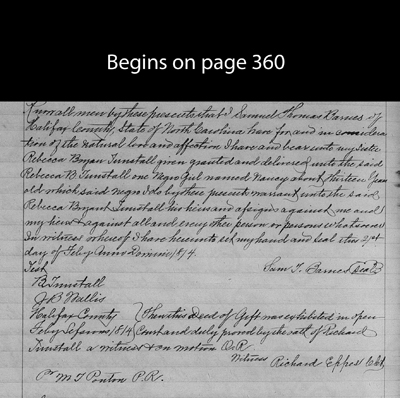 Begins on page 360
Know all men by these presents that I Samuel Thomas Barnes of
Halifax County, State of North Carolina have for and in considera
tion of the natural love and affection I have and bear unto my Sister
Rebecca Bryan Tunstall given granted and delivered unto the said
Rebecca B. Tunstall one Negro Girl named Nancy about thirteen years
old which said Negro I do by these presents warrant unto the said
Rebecca Bryant Tunstall his heirs and assigns against me and
my heirs & against all and every other person or persons whatsoever
In witness whereof I have hereunto set my hand and seal this 21st
day of Feby Anno Domini 1814.
Test Sam T. Barnes Seal
R Tunstall
J B Wallis
Halifax County Then this Deed of Gift was exhibited in open
Feby Session 1814 Court and duly proved by the oath of Richard
Tunstall a witness & on motion O.R.
Witness Richard Eppes Clk
Pr M T Ponton P.R.